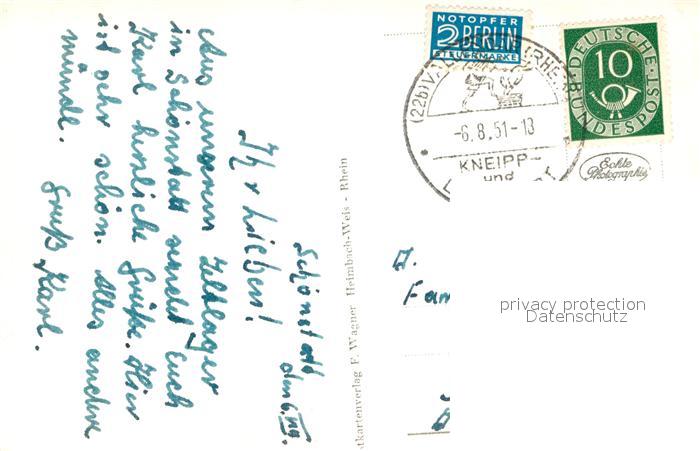 Schönstatt
den 6. VIII.
Ihr Lieben!
Aus unserem Zeltlager
in Schönstatt sendet Euch
Karl herzliche Grüße. Hier
ist sehr schön. Alles andere
münde.
Gruß Karl.
tkartenverlag F. Wagner Heimbach-Weis - Rhein
NOTOPFER
2 BERLIN
STEUERMARKE
(22b) VAL (RHEIN)
-6.8.51-13
KNEIPP-
und
DEUTSCHE
BUNDESPOST
10
Echte
Photographie
A.
Fam
privacy protection
Datenschutz